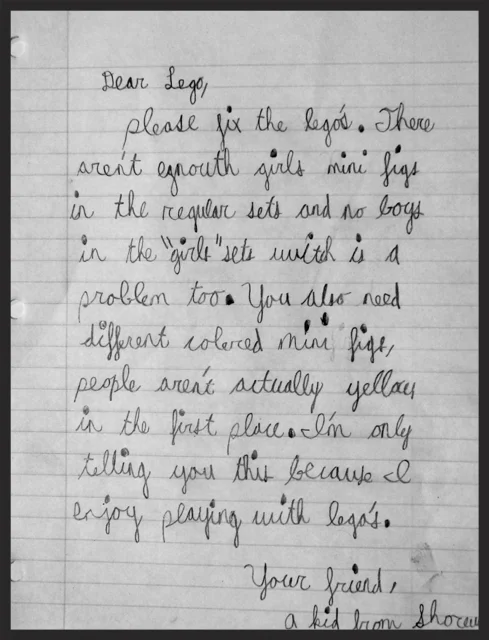 Dear Lego,
please fix the lego's. There
aren't egnouth girls mini figs
in the regular sets and no boys
in the "girls" sets witch is a
problem too. You also need
different colored mini figs,
people aren't actually yellow
in the first place. I'm only
telling you this because I
enjoy playing with lego's.
Your friend,
a kid from